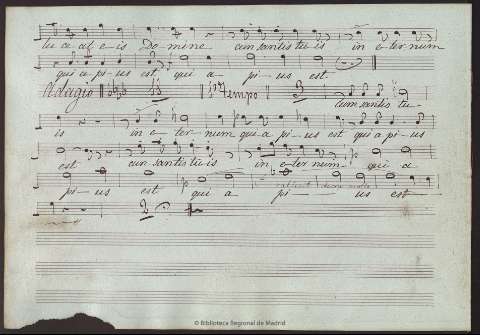 lu ce at e is Do mine cun santis tu is in e ter num
qui a pi us est qui a pi us est
Adagio 33 1º Tempo 3 cum santis tu
is in e ter num qui a pi us est qui a pi us
est cun santis tu is in e ter num qui a
pi us est qui a pi us est
2
© Biblioteca Regional de Madrid